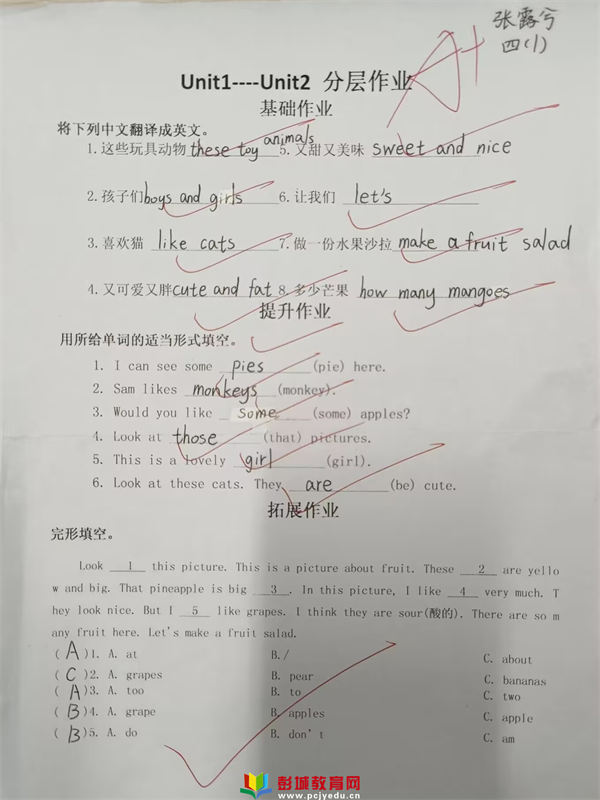 张露兮
四(1)
A+
Unit1----Unit2 分层作业
基础作业
将下列中文翻译成英文。
1.这些玩具动物 these toy animals 5.又甜又美味 sweet and nice
2.孩子们 boys and girls 6.让我们 let's
3.喜欢猫 like cats 7.做一份水果沙拉 make a fruit salad
4.又可爱又胖 cute and fat 8.多少芒果 how many mangoes
提升作业
用所给单词的适当形式填空。
1. I can see some pies (pie) here.
2. Sam likes monkeys (monkey).
3. Would you like some (some) apples?
4. Look at those (that) pictures.
5. This is a lovely girl (girl).
6. Look at these cats. They are (be) cute.
拓展作业
完形填空。
Look 1 this picture. This is a picture about fruit. These 2 are yello
w and big. That pineapple is big 3. In this picture, I like 4 very much. T
hey look nice. But I 5 like grapes. I think they are sour(酸的). There are so m
any fruit here. Let's make a fruit salad.
(A)1. A. at B./ C. about
(C)2. A. grapes B. pear C. bananas
(A)3. A. too B. to C. two
(B)4. A. grape B. apples C. apple
(B)5. A. do B. don't C. am
彭城教育网
www.pcjyedu.cn